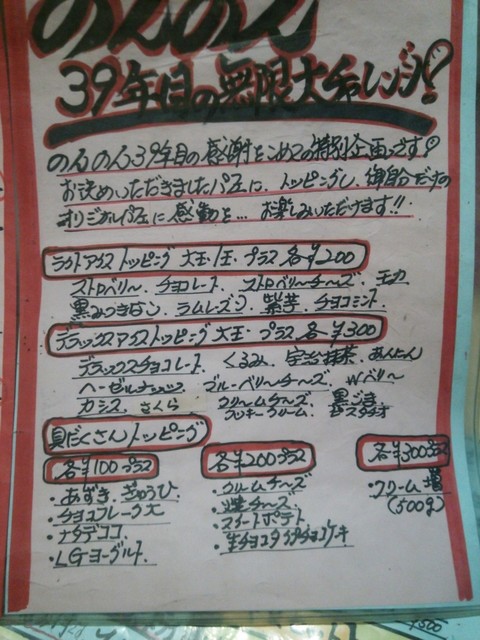 のんのん
39年目の無限大チャレンジ!?
のんのん39年目の感謝をこめての特別企画です!
お決めいただきましたパフェに、トッピングし、御自分だけの
オリジナルパフェに感動を… お楽しみいただけます!!
ラクトアイス トッピング 大玉1玉 プラス 各¥200
ストロベリー チョコレート ストロベリーチーズ モカ
黒みつきなこ ラムレーズン 紫芋 チョコミント
デラックスアイス トッピング 大玉 プラス 各¥300
デラックスチョコレート くるみ 宇治抹茶 あんにん
ヘーゼルナッツ ブルーベリーチーズ Wベリー
カシス さくら クリームチーズ 黒ごま
クッキークリーム ピスタチオ
具だくさんトッピング
各¥100プラス 各¥200プラス 各¥300プラス
・あずき ぎゅうひ ・クリームチーズ ・クリーム増
・チョコフレーク大 ・チーズ (500g)
・ナタデココ ・スイートポテト
・LGヨーグルト ・生チョコタイプチョコケーキ
¥500